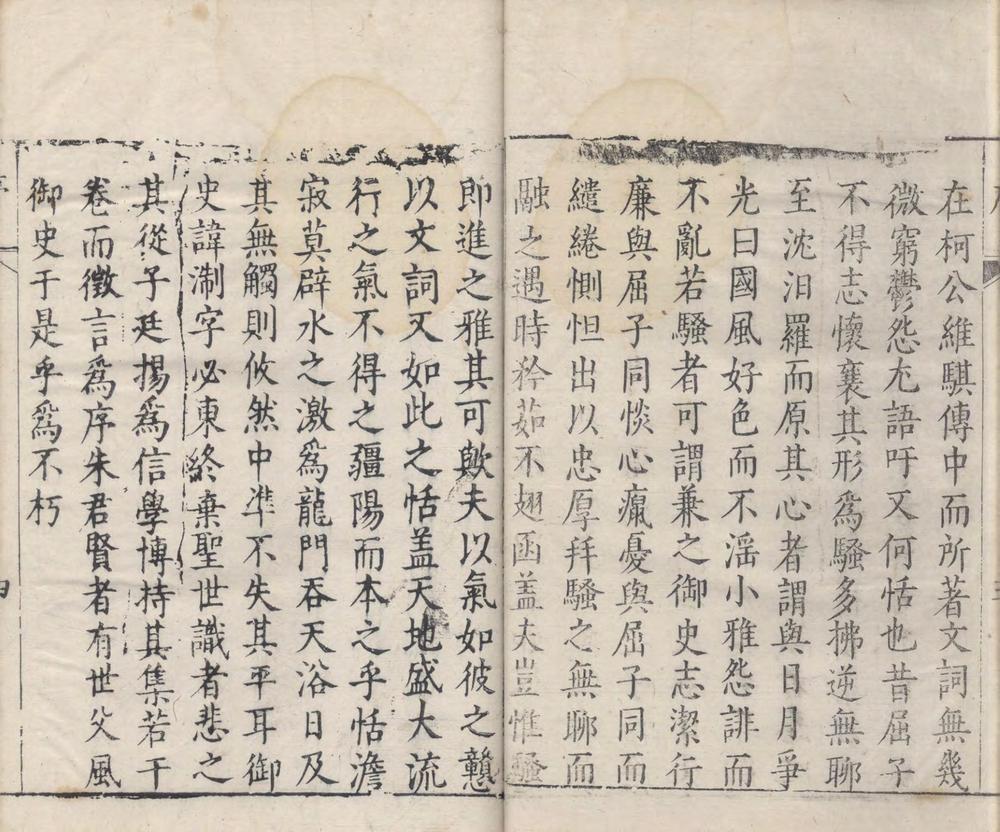 在柯公維騏傳中而所著文詞無幾
微窮鬱怨尤語吁又何恬也昔屈子
不得志懷襄其形爲騷多拂逆無聊
至沈汨羅而原其心者謂與日月爭
光曰國風好色而不淫小雅怨誹而
不亂若騷者可謂兼之御史志潔行
廉與屈子同惔心癙憂與屈子同而
繾綣惻怛出以忠厚拜騷之無聊而
融之遇時矜茹不翅函盖夫豈惟騷
即進之雅其可歟夫以氣如彼之戇
以文詞又如此之恬盖天地盛大流
行之氣不得之疆陽而本之乎恬澹
寂莫辟水之激爲龍門吞天浴日及
其無觸則攸然中準不失其平耳御
史諱淛字必東終棄聖世識者悲之
其從子廷揚爲信學博持其集若干
卷而徵言爲序朱君賢者有世父風
御史于是乎爲不朽
四